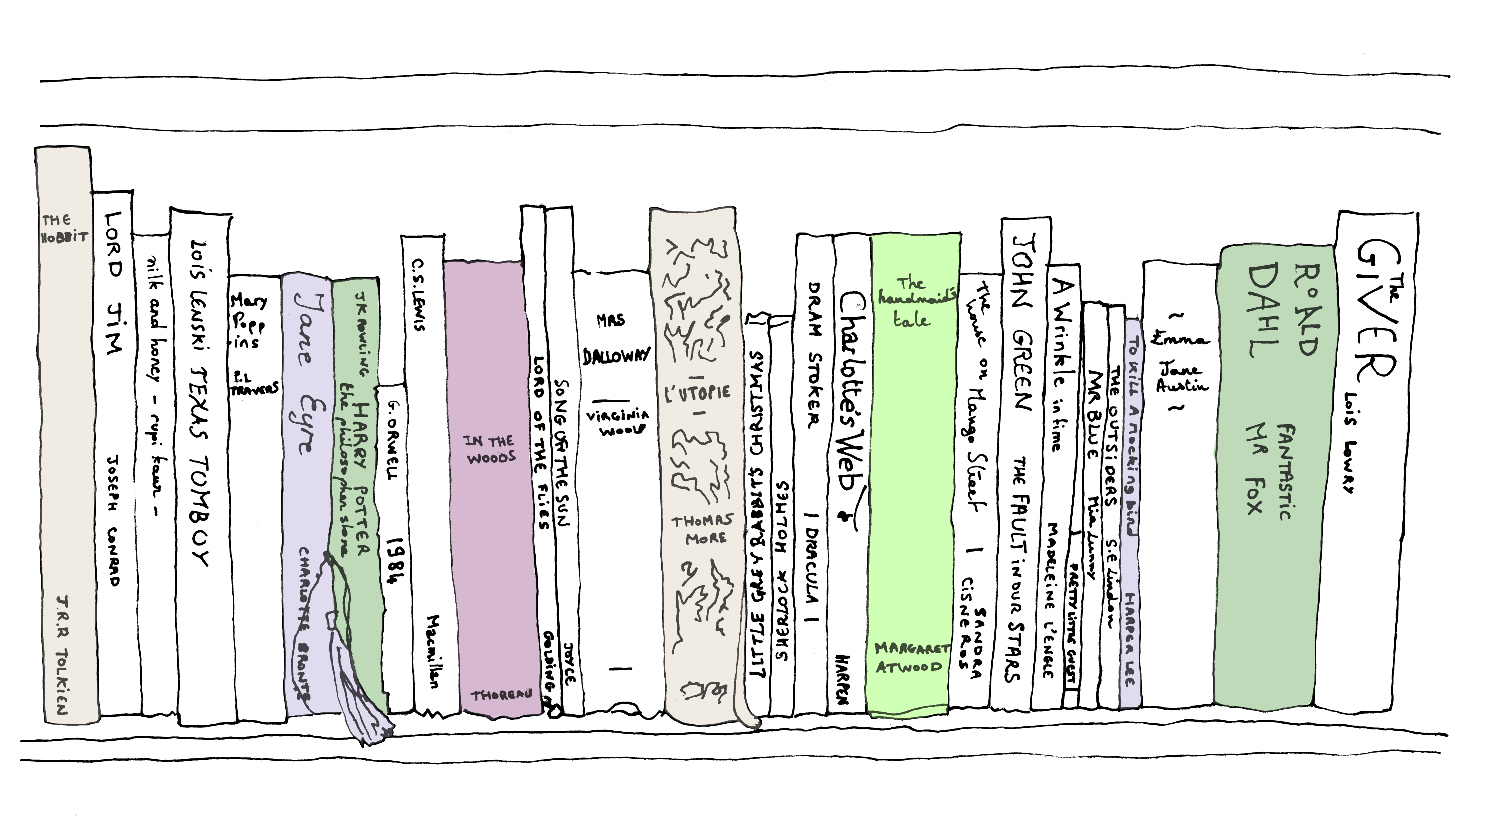 THE
HOBBIT
J.R.R TOLKIEN
LORD JIM JOSEPH CONRAD
milk and honey - rupi kaur -
LOIS LENSKI TEXAS TOMBOY
Mary
Popp
-ins
P.L
TRAVERS
Jane Eyre CHARLOTTE BRONTE
JK ROWLING HARRY POTTER
the philosopher stone
G.ORWELL 1984
C.S.LEWIS Macmillan
IN THE
WOODS
THOREAU
LORD OF THE FLIES GOLDING
SONG OF THE SUN JOYCE
MRS
DALLOWAY
VIRGINIA
WOOLF
L'UTOPIE
THOMAS
MORE
LITTLE GREY RABBIT'S CHRISTMAS
SHERLOCK HOLMES
DRAM STOKER | DRACULA |
Charlotte's Web HARPER
The
handmaid's
tale
MARGARET
ATWOOD
The house on Mango Street | SANDRA
CISNEROS
JOHN GREEN THE FAULT IN OUR STARS
A Wrinkle in time MADELEINE L'ENGLE
PRETTY LITTLE GUEST
MR BLUE
THE OUTSIDERS S.E Lindon
TO KILL A MOCKING bird HARPER LEE
~
Emma
Jane
Austin
~
ROALD
DAHL
FANTASTIC
MR FOX
The
GIVER
LOIS LOWRY